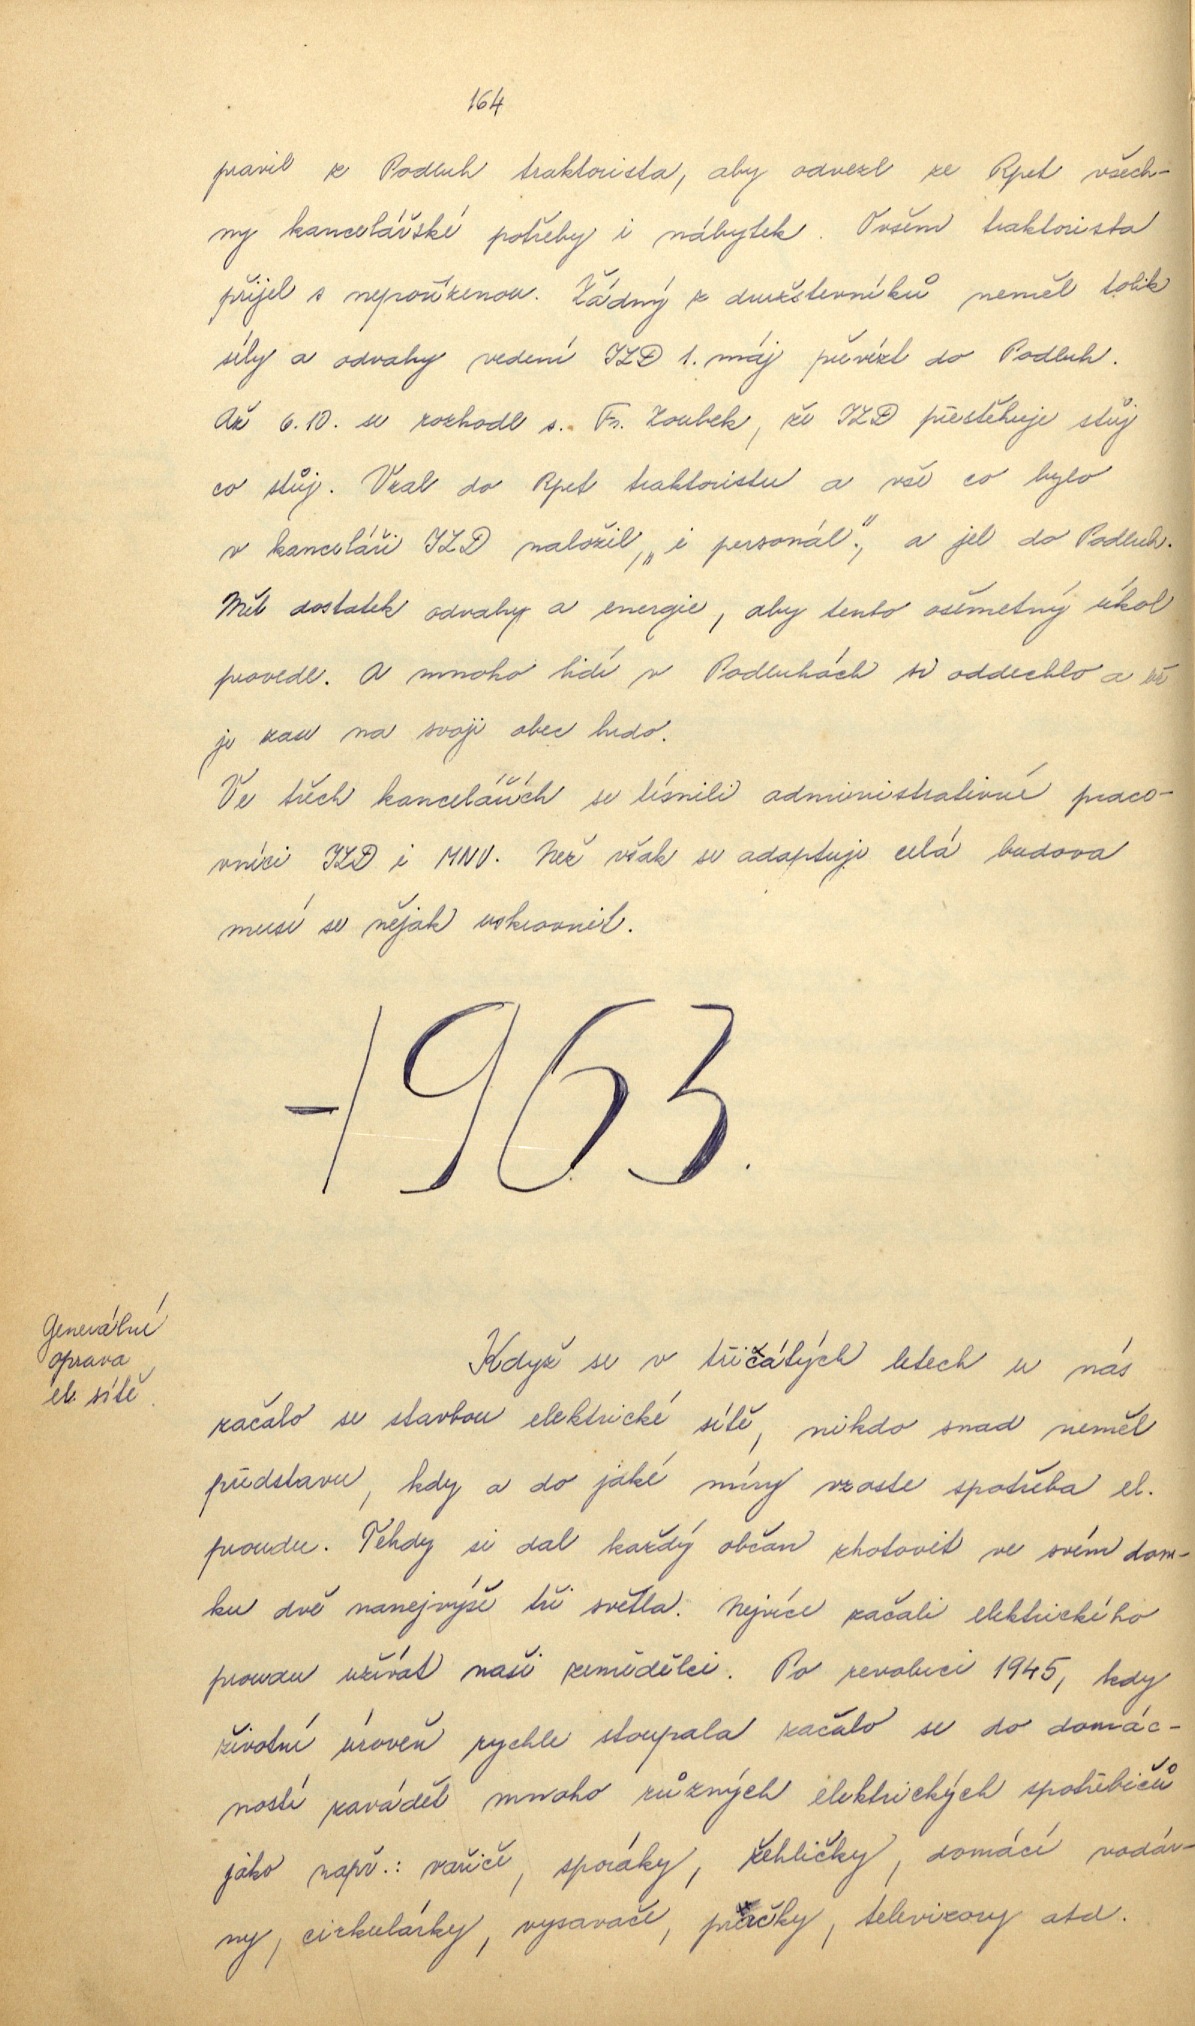 164
pravil z Podluh traktorista, aby odvezl ze Rpet všech-
ny kancelářské potřeby i nábytek. Ovšem traktorista
přijel s nepořízenou. Žádný z družstevníků neměl tolik
síly a odvahy vedení JZD 1. máj převézt do Podluh.
Až 6.10. se rozhodl s. Fr. Zoubek, že JZD přestěhuje stůj
co stůj. Vzal do Rpet traktoristu a vše co bylo
v kanceláři JZD naložil, „i personál", a jel do Podluh.
Měl dostatek odvahy a energie, aby tento ošemetný úkol
provedl. A mnoho lidí v Podluhách si oddechlo a
je zau na svoji obec hrdo.
Ve třech kancelářích se tísnili administrativní praco-
vníci JZD i MNV. Než však se adaptuje celá budova
musí se nějak uskrovnit.
1963.
Generální
oprava
el. sítě.
Když se v třicátých letech u nás
začalo se stavbou elektrické sítě, nikdo snad neměl
představu, kdy a do jaké míry vzroste spotřeba el.
proudu. Tehdy si dal každý občan zhotovit ve svém dom-
ku dvě nanejvýše tři světla. Nejvíce začali elektrického
proudu užívat naši zemědělci. Po revoluci 1945, kdy
životní úroveň rychle stoupala začalo se do domác-
ností zavádět mnoho různých elektrických spotřebičů
jako např.: vařiče, sporáky, žehličky, domácí vodár-
ny, cirkulárky, vysavače, pračky, televizory atd.